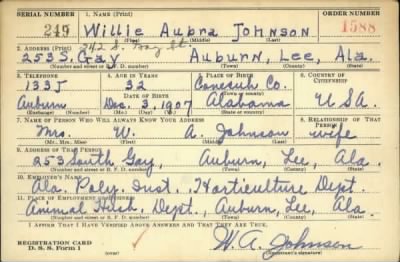 SERIAL NUMBER 1. NAME (Print) ORDER NUMBER
249 Willie Aubra Johnson 1588
(First) (Middle) (Last)
2. ADDRESS (Print) 242 S. Gay St.
253 S. Gay Auburn, Lee, Ala.
(Number and street or R. F. D. number) (Town) (County) (State)
3. TELEPHONE 4. AGE IN YEARS 5. PLACE OF BIRTH 6. COUNTRY OF CITIZENSHIP
133J 32 Conecuh Co.
DATE OF BIRTH (Town or county)
Auburn Dec. 3, 1907 Alabama USA.
(Exchange) (Number) (Mo.) (Day) (Yr.) (State or country)
7. NAME OF PERSON WHO WILL ALWAYS KNOW YOUR ADDRESS 8. RELATIONSHIP OF THAT PERSON
Mrs. W. A. Johnson wife
(Mr., Mrs., Miss) (First) (Middle) (Last)
9. ADDRESS OF THAT PERSON
253 South Gay, Auburn, Lee, Ala.
(Number and street or R. F. D. number) (Town) (County) (State)
10. EMPLOYER'S NAME
Ala. Poly. Inst. Horticulture Dept.
11. PLACE OF EMPLOYMENT OR BUSINESS
Animal Dept., Auburn, Lee, Ala
(Number and street or R. F. D. number) (Town) (County) (State)
I AFFIRM THAT I HAVE VERIFIED ABOVE ANSWERS AND THAT THEY ARE TRUE.
REGISTRATION CARD
D. S. S. Form 1
W. A. Johnson
(Registrant's signature)